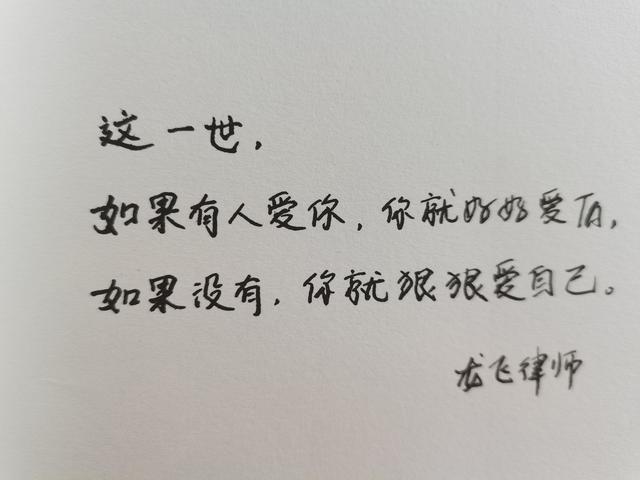 这一世,
如果有人爱你,你就好好爱
如果没有,你就狠狠爱自己。
龙飞律师